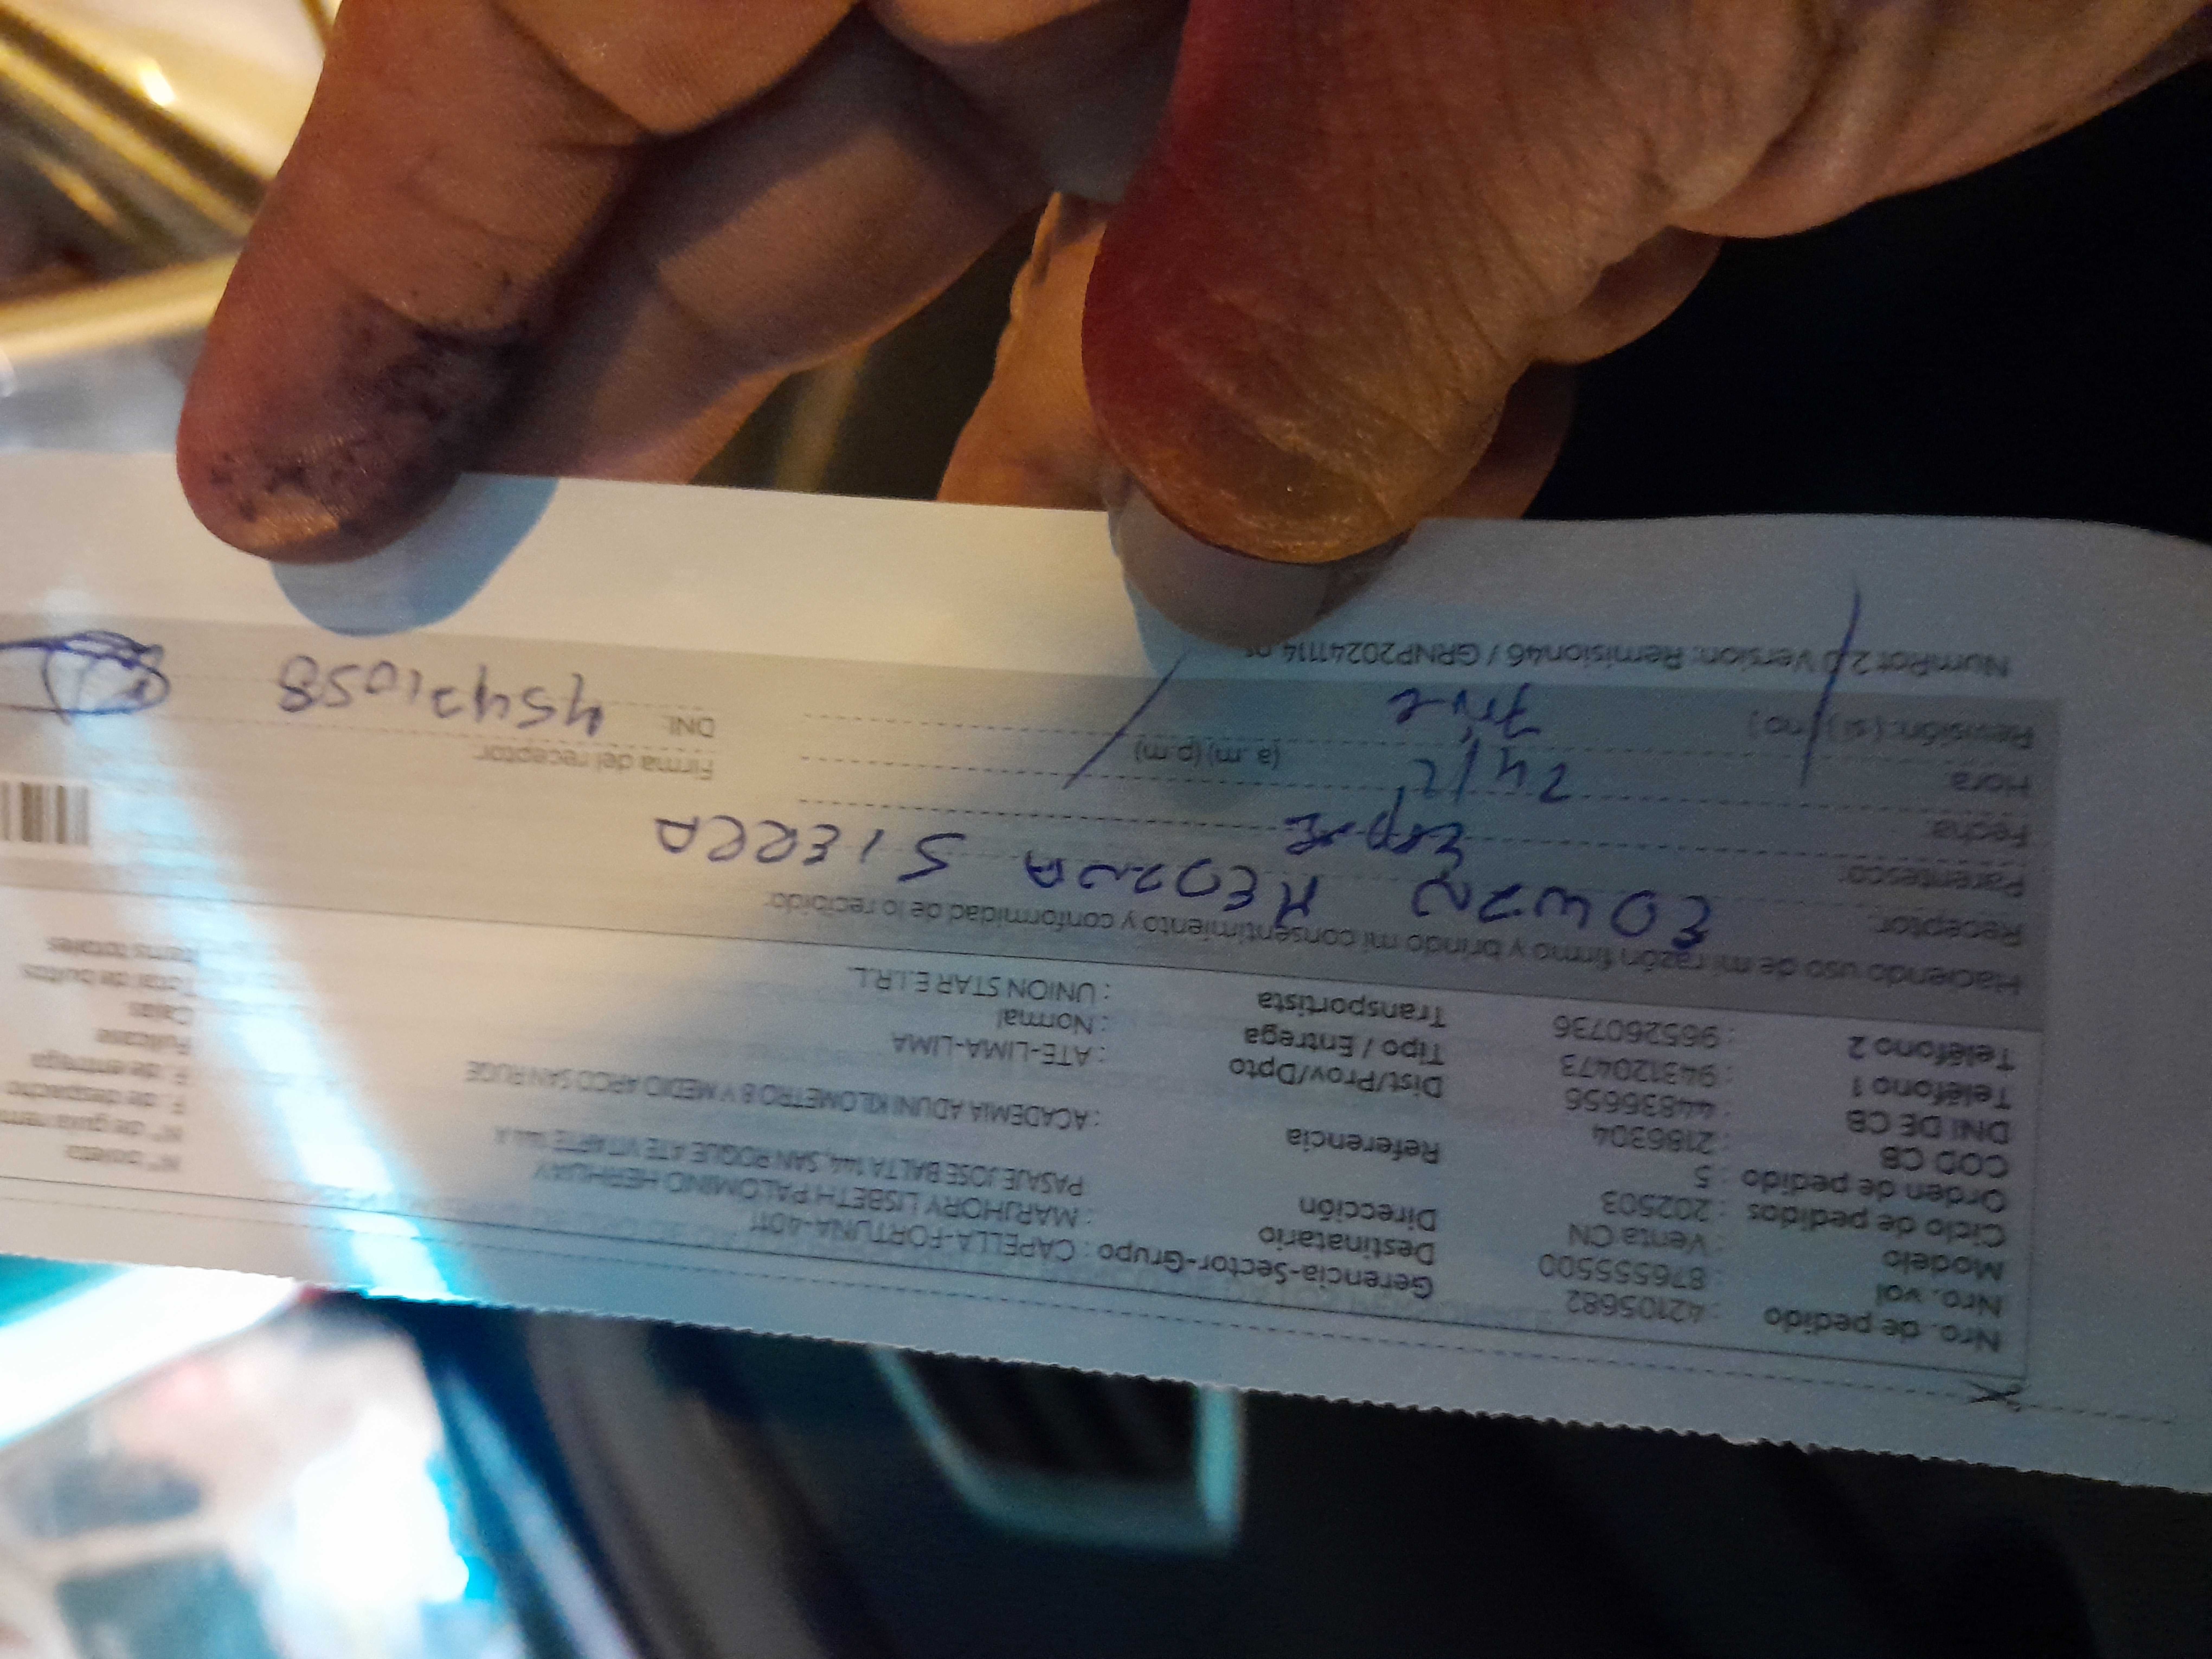 Nro. de pedido : 42105682 Gerencia-Sector-Grupo : CAPELLA-FORTUNA-4011
Nro. vol : 876555500 Destinatario : MARJHORY LISBETH PALOMINO HERHUAY
Modelo : Venta CN Dirección PASAJE JOSE BALTA 144, SAN ROQUE ATE VITARTE 144 A
Ciclo de pedidos : 202503
Orden de pedido : 5 Referencia : ACADEMIA ADUNI KILOMETRO 8 Y MEDIO ARCO SAN RUGE
COD CB : 2186304
DNI DE CB : 44836656 Dist/Prov/Dpto : ATE-LIMA-LIMA
Teléfono 1 : 943120473 Tipo / Entrega : Normal
Teléfono 2 : 965260736 Transportista : UNION STAR E.I.R.L.
N° boleta
N° de guía
F. de despacho
F. de entrega
Fullcase
Cajas
Total de bultos
Items totales
Haciendo uso de mi razón firmo y brindo mi consentimiento y conformidad de lo recibido:
Receptor: EDWIN MEDINA SIERRA
Parentesco:
Fecha: 24/2
Hora (a. m) (p.m) Firma del receptor:
Revisión: ( si ) ( no ) DNI: 45471058
NumPlot 2.0 Version: Remision46 / GRNP20241114